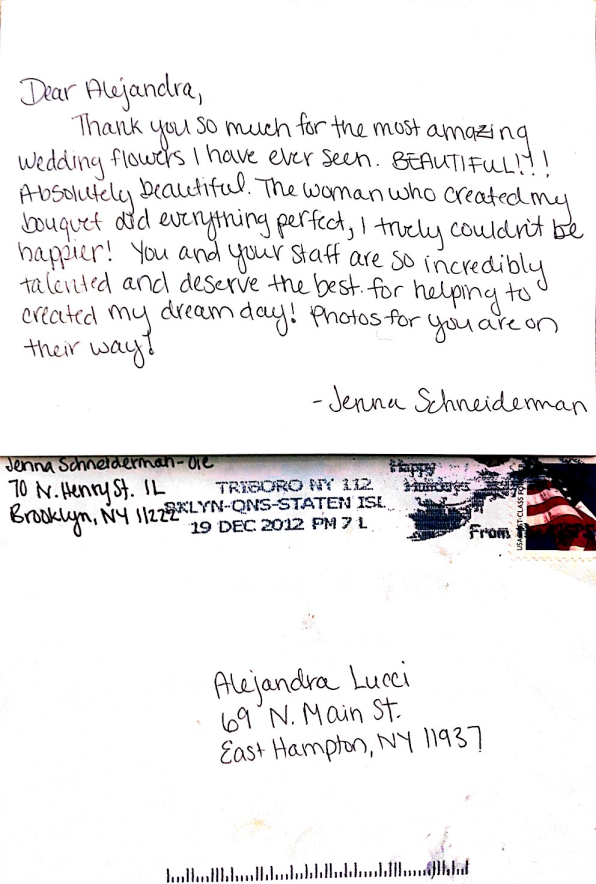 Dear Alejandra,
Thank you so much for the most amazing
wedding flowers I have ever seen. BEAUTIFUL!!!
Absolutely beautiful. The woman who created my
bouquet did everything perfect, I truely couldn't be
happier! You and your staff are so incredibly
talented and deserve the best for helping to
created my dream day! Photos for you are on
their way!
- Jenna Schneiderman
Jenna Schneiderman-
70 N. Henry St. 1L
Brooklyn, NY 11222
TRIBORO NY 112
BKLYN-QNS-STATEN ISL
19 DEC 2012 PM 7 L
Happy
From
USA FIRST-CLASS
Alejandra Lucci
69 N. Main St.
East Hampton, NY 11937